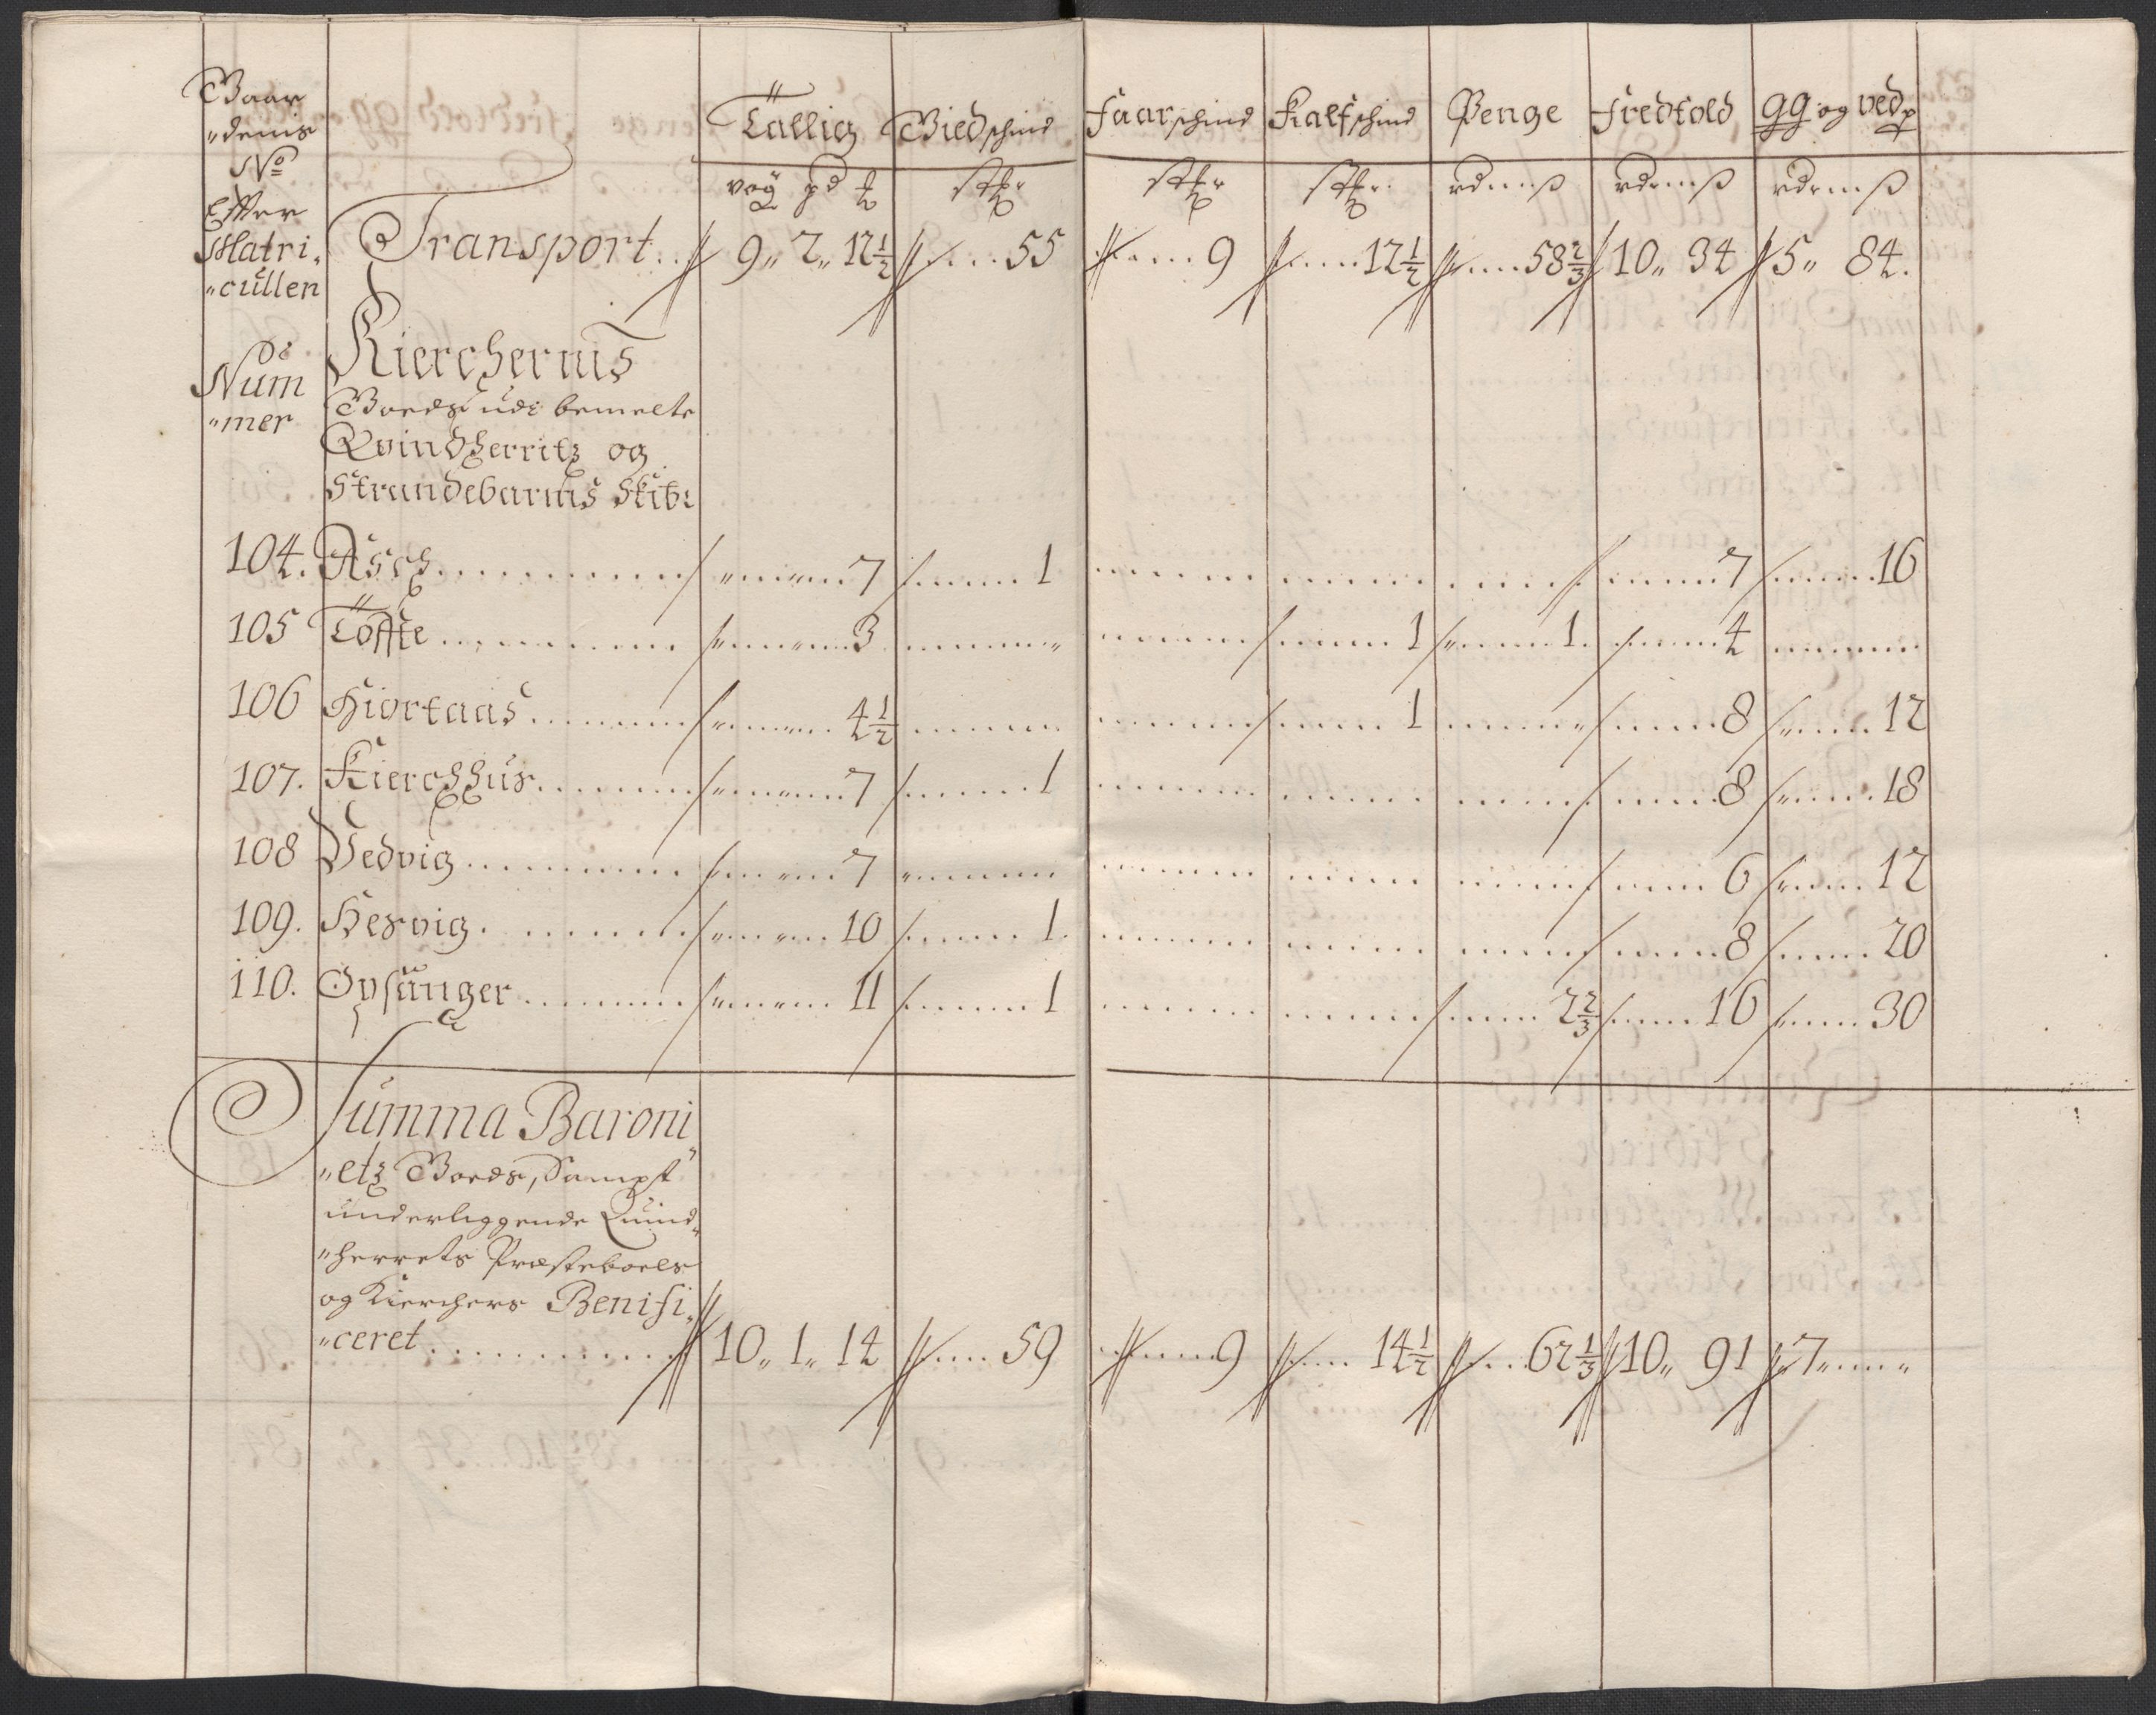 Gaar
"denis
No
Efter
Matri,
"cullen
Num
"mer
Tallig Giedschind Faarschind Kalfschind Penge Fredtold gg og ved
vog pd
Transport 9" 2" 12½ 55 9 12½ 58⅔ 10" 34 5" 84.
Kierchernis
Goeds udi bemelte
Qvindherritz og
Strandebarms Skib:
104. Asch 7 1 7 16
105 Tofte 3 1 1 4
106 Hiortaas 4½ 1 8 12
107. Kierchhus 7 1 8 18
108 Vedvig 7 6 12
109. Hesvig 10 1 8 20
110. Opsanger 11 1 2⅔ 16 30
Summa Baroni
"etz Goeds, Sampt
underliggende Quind"
"herrets Præsteboels
og Kierchers Benifi,
"ceret 10" 1" 14 59 9 14½ 62⅓ 10" 91 7